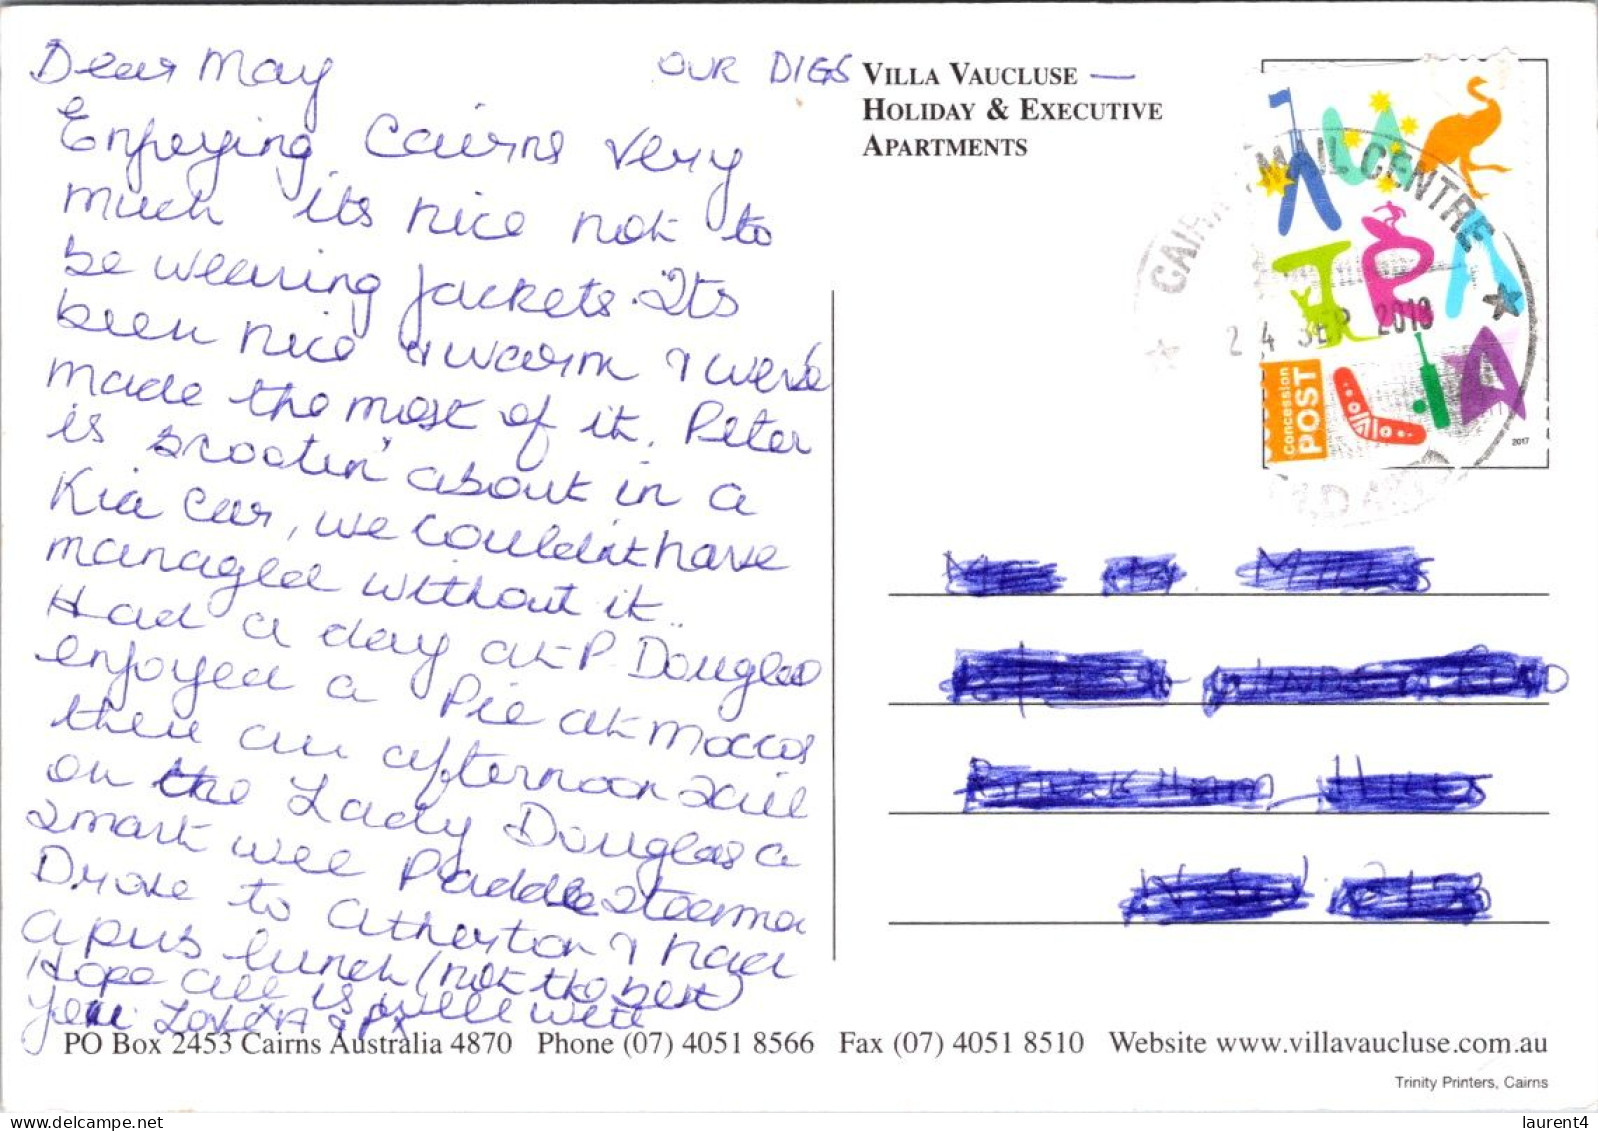 Dear May
Enjoying Cairns very
much its nice not to
be wearing jackets. Its
been nice & warm & we've
made the most of it. Peter
is scootin' about in a
Kia car, we couldn't have
managed without it..
Had a day at P. Douglas
enjoyed a Pie at Moccas
then an afternoon sail
on the Lady Douglas a
smart wee Paddle Steama
Drove to Atherton & had
a pub lunch (not the best)
Hope all is well with
you. Love
OUR DIGS
VILLA VAUCLUSE —
HOLIDAY & EXECUTIVE
APARTMENTS
AUSTRALIA
concession
POST
2017
CAIRNS MAIL CENTRE
24 SEP 2018
PO Box 2453 Cairns Australia 4870 Phone (07) 4051 8566 Fax (07) 4051 8510 Website www.villavaucluse.com.au
Trinity Printers, Cairns
delcampe.net
laurent4